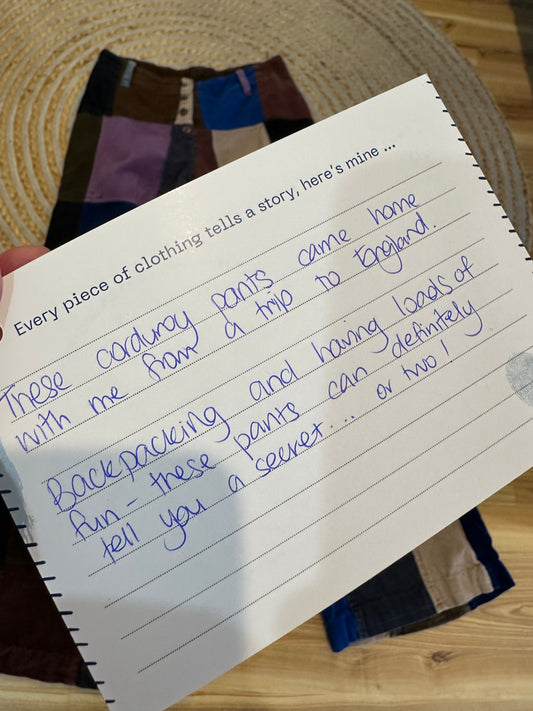 Every piece of clothing tells a story, here's mine ...
These corduroy pants came home
with me from a trip to England.
Backpacking and having loads of
fun - these pants can definitely
tell you a secret... or two!